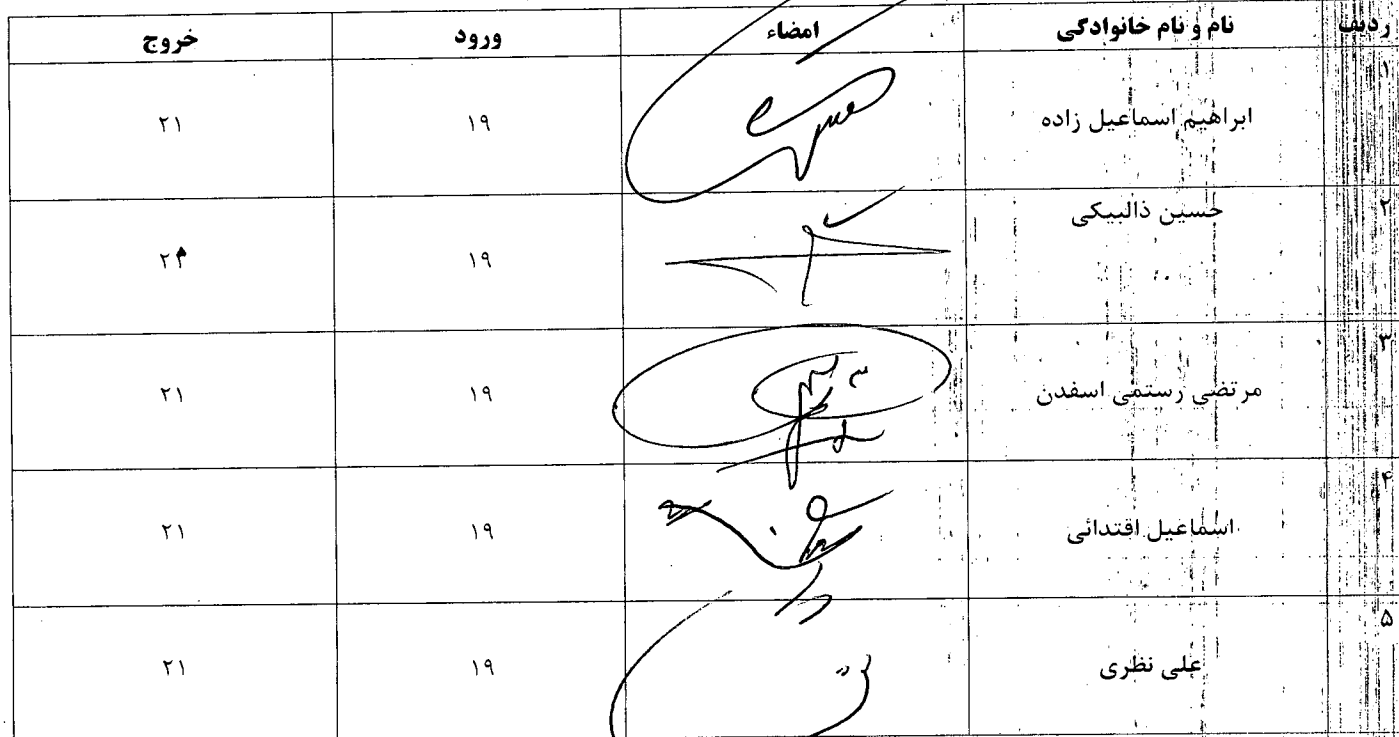 ردیف نام و نام خانوادگی امضاء ورود خروج
۱ ابراهیم اسماعیل زاده ۱۹ ۲۱
۲ حسین ذالبیکی ۱۹
۳ مرتضی رستمی اسفدن ۱۹ ۲۱
۴ اسماعیل اقتدائی ۱۹ ۲۱
۵ علی نظری ۱۹ ۲۱